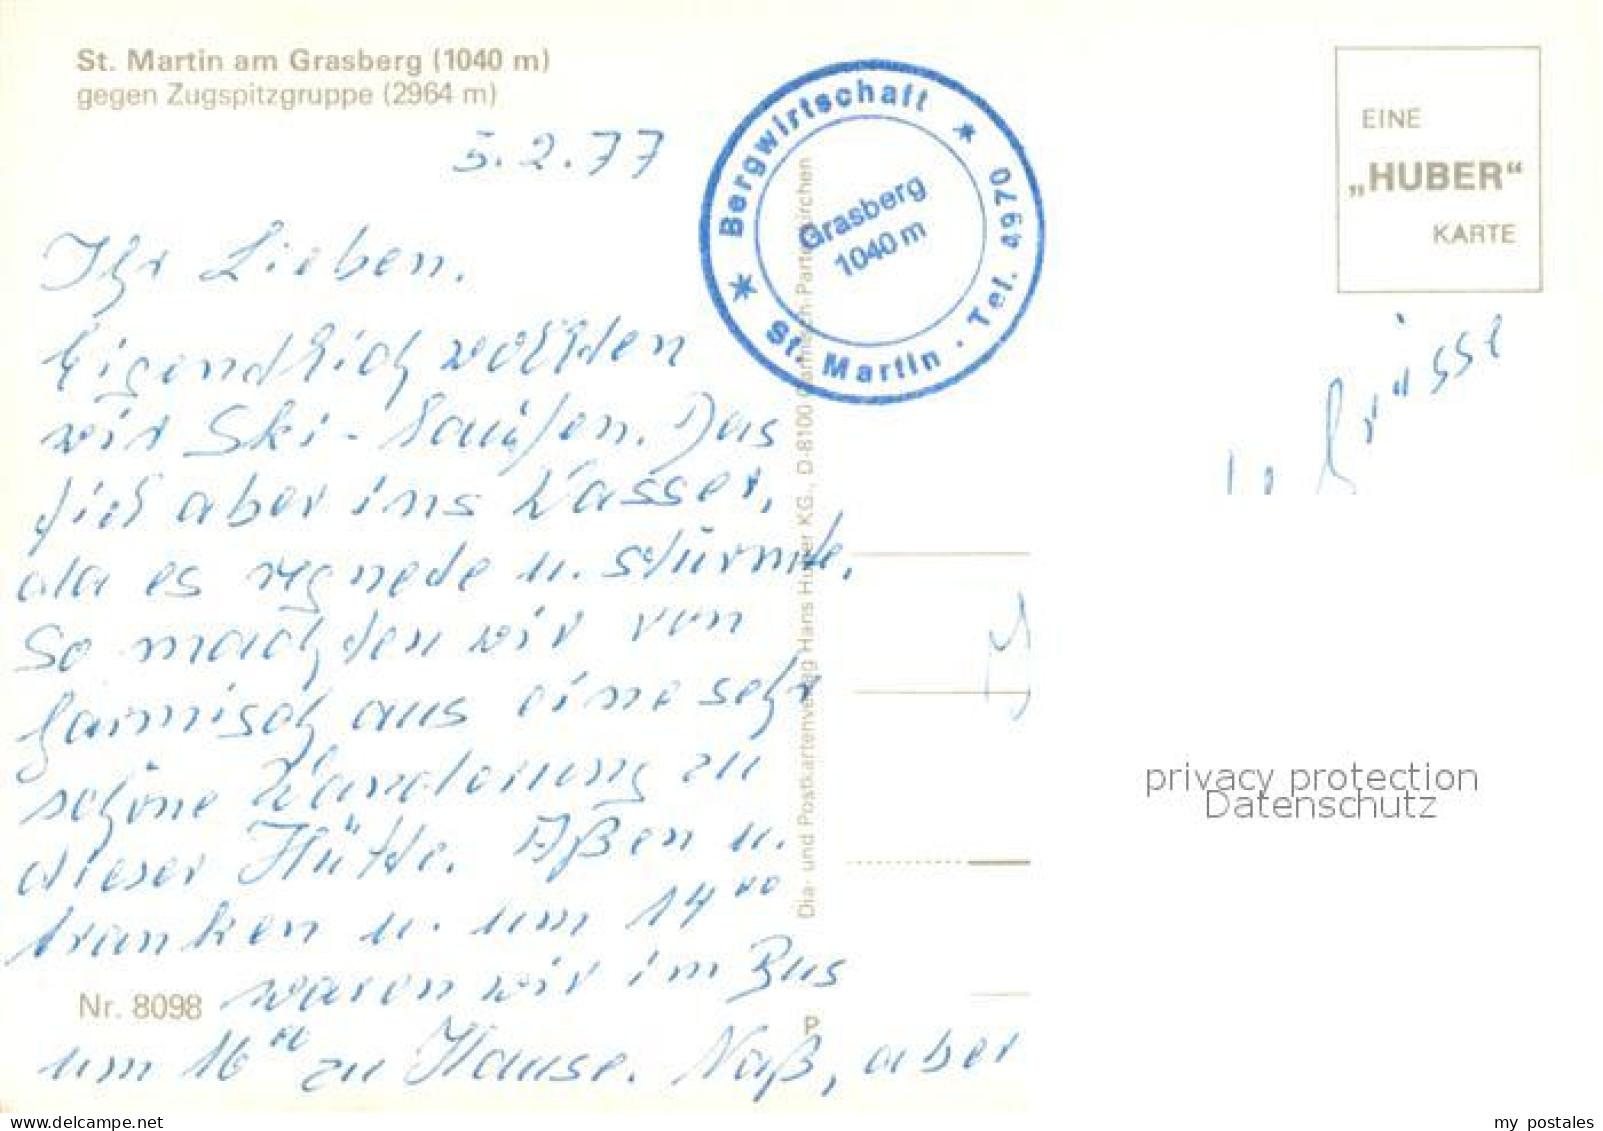 St. Martin am Grasberg (1040 m)
gegen Zugspitzgruppe (2964 m)
5.2.77
Ihr Lieben.
Eigendlich wollten
wir Ski-laufen. Das
fiel aber ins Wasser,
da es regnede u. stürmte.
So machten wir von
Garmisch aus eine sehr
schöne Wanderung zu
dieser Hütte. Aßen u.
tranken u. um 14⁰⁰
waren wir im Bus
um 16⁰⁰ zu Hause. Naß, aber
Nr. 8098
Bergwirtschaft
St. Martin · Tel. 4970
Grasberg
1040 m
Dia- und Postkartenverlag Hans Huber KG., D-8100 Garmisch-Partenkirchen
P
EINE
„HUBER“
KARTE
Grüsse
privacy protection
Datenschutz
my postales